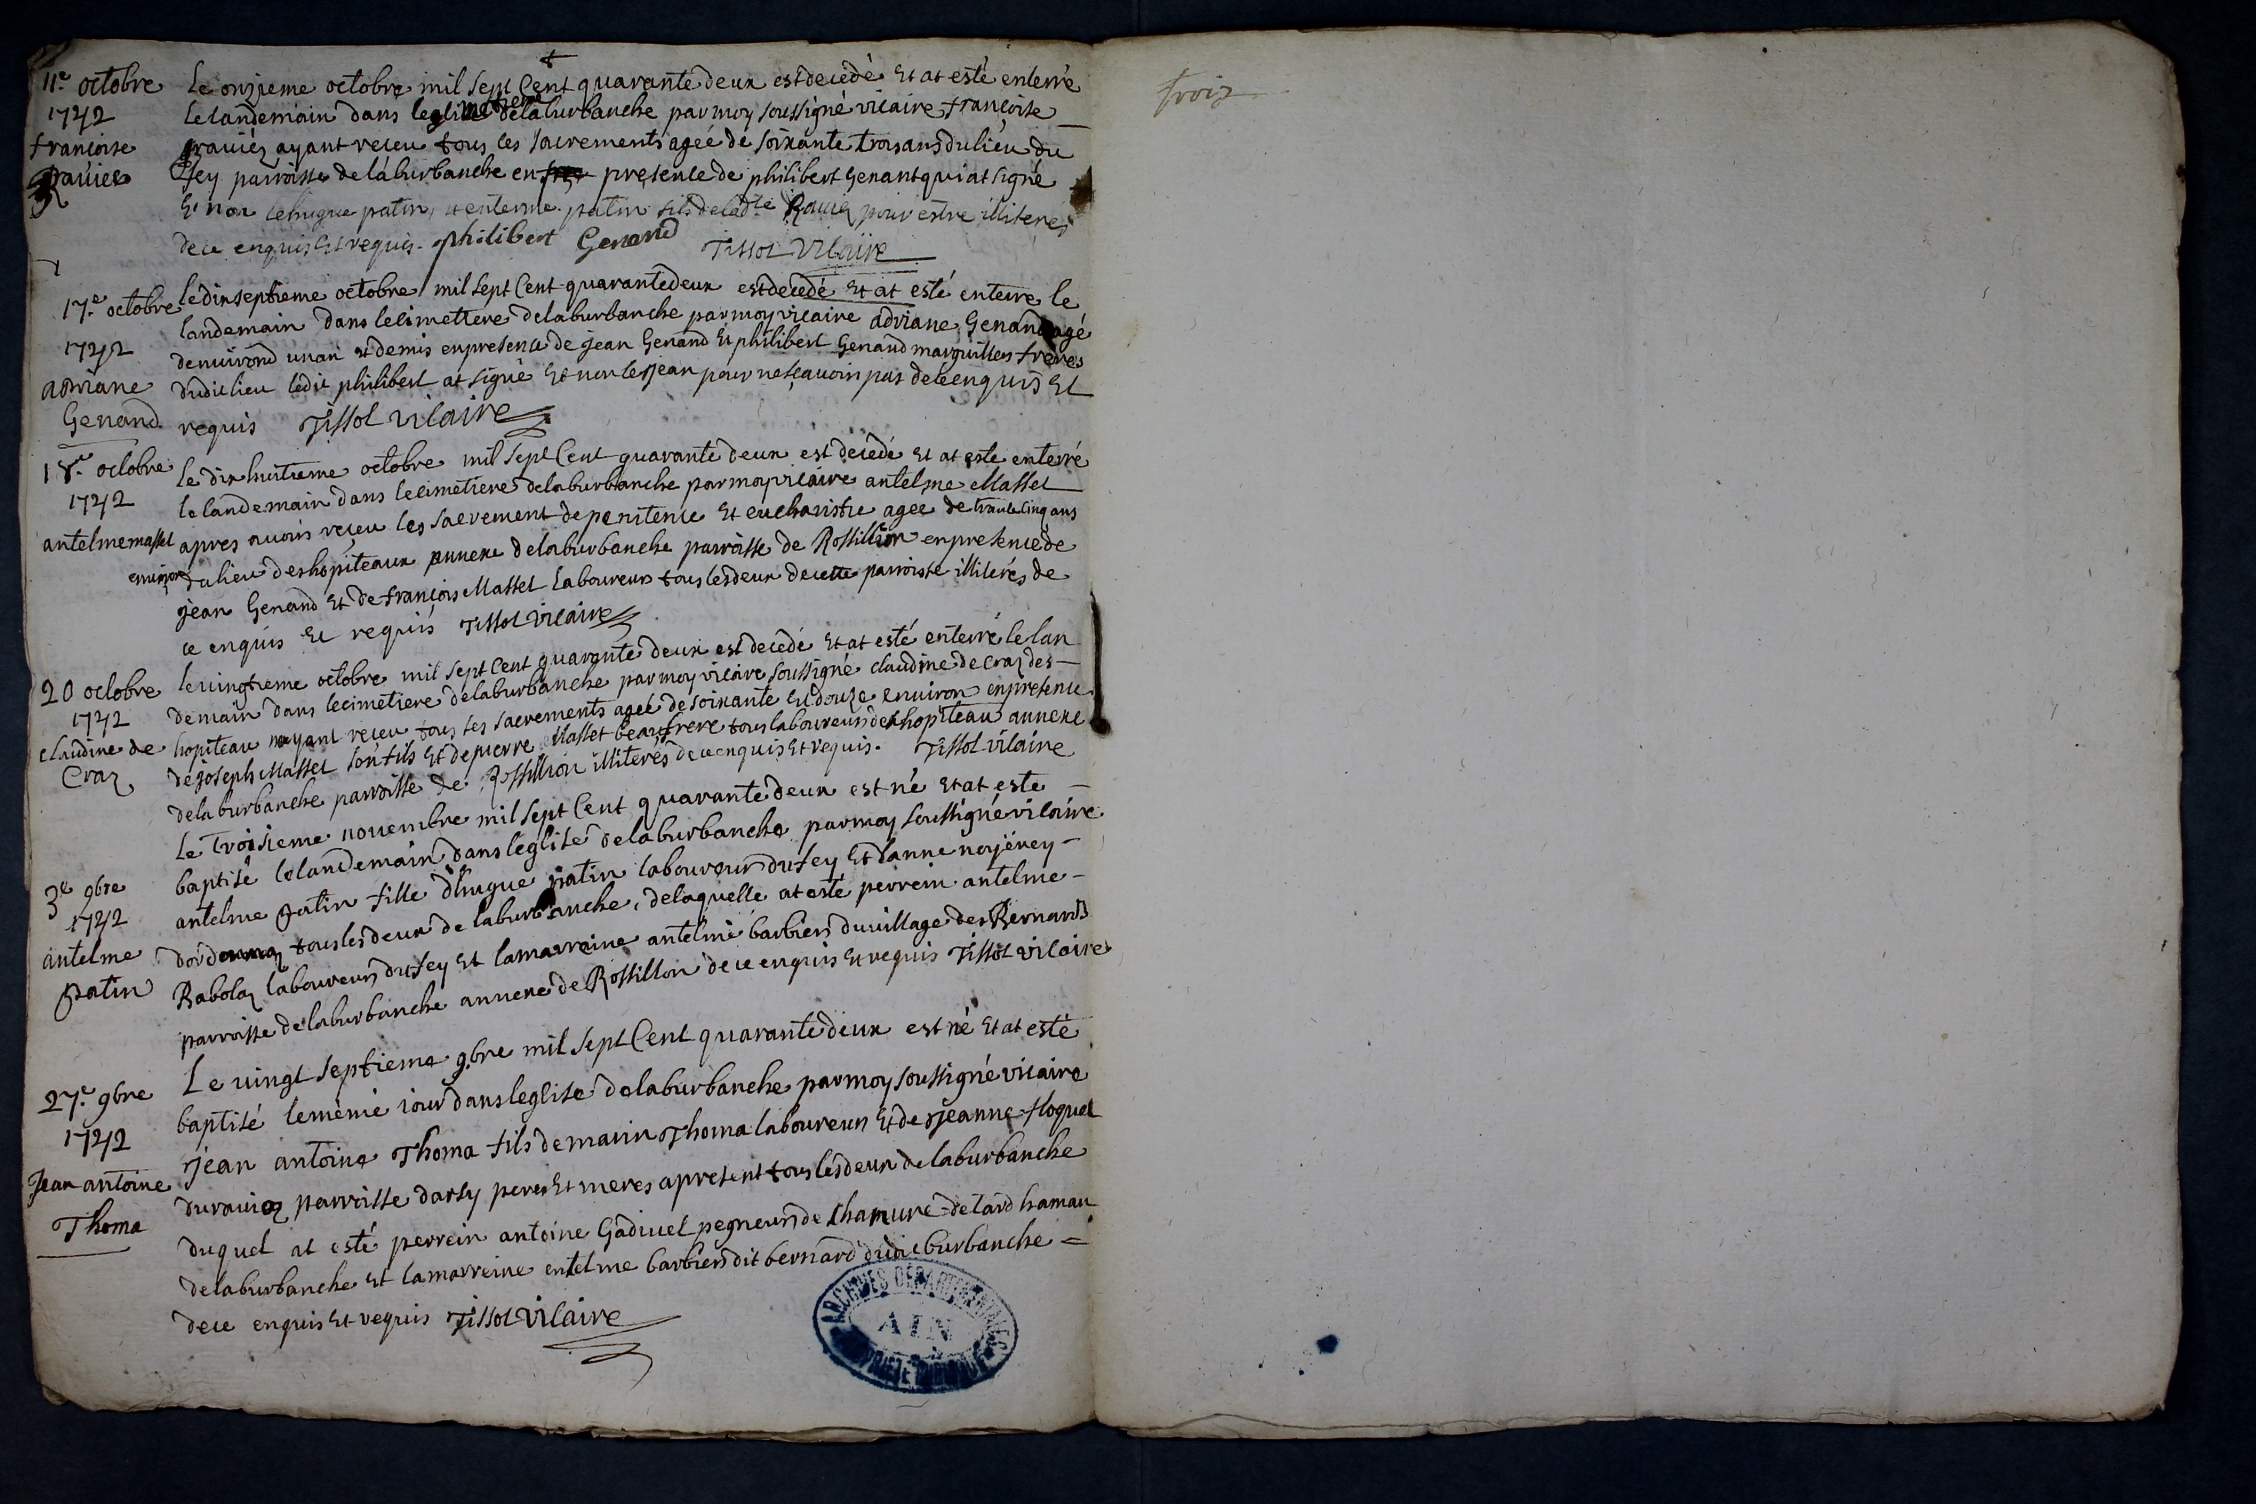 11e octobre
1742
françoise
ravier
Le onzieme octobre mil sept Cent quarante deux est decédé Et at esté enterré
le landemain dans le cimettiere de laburbanche par moy soussigné vicaire françoise
ravier ayant receu tous les sacrements ageé de soixante trois ans du lieu du
fey parroisse de laburbanche en presence de philibert Genant qui at signé
Et non le hugue patin, et patin fils de ladte Ravier pour estre illiterés
de ce enquis Et requis. philibert Genand Tissot Vicaire
17.e octobre
1742
adriane
Genand
le dixseptieme octobre mil sept Cent quarante deux est decedé Et at esté enterré le
landemain dans le cimettere de laburbanche par moy vicaire adriane Genand agé
denviroñ un an et demis en presence de jean Genand Et philibert Genand marguilliers freres
dudit lieu ledit philibert at signé Et non le jean pour ne sçavoir pas de ce enquis Et
requis Tissot vicaire
18.e octobre
1742
antelme masset
environ
le dixhuitieme octobre mil sept Cent quarante deux est decedé Et at este enterré
le landemain dans le cimetiere de laburbanche par moy vicaire antelme Masset
apres avoir reçeu les sacrement de penitence Et eucharistie agee de trante cinq ans
du lieu des hopiteaux annexe de laburbanche parroisse de Rossillion en presence de
jean Genand Et de françois Masset laboureurs tous les deux de cette parroisse illiterés de
ce enquis Et requis Tissot vicaire
20 octobre
1742
claudine de
Craz
le vingtieme octobre mil sept Cent quarante deux est decedé Et at esté enterré le lan
demain dans le cimetiere de laburbanche par moy vicaire soussigné claudine de craz des
hopiteau ayant receu tous les sacrements ageé de soixante Et douze environ en presence
de joseph Masset son fils Et de pierre Masset beaufrere tous laboureurs des hopiteau annexe
de laburbanche parroisse de Rossillion illiterés de ce enquis Et requis. Tissot vicaire
3e 9bre
1742
antelme
patin
Le troisieme novembre mil sept Cent quarante deux est né Et at este
baptisé le landemain dans leglise de laburbanche par moy soussigné vicaire
antelme patin fille dhugue patin laboureur du fey Et danne
tous les deux de laburbanche, de laquelle at esté perrein antelme
Rabolaz laboureur du fey Et la marraine antelme barbier du village des Bernards
parroisse de laburbanche annexe de Rossillon de ce enquis Et requis Tissot vicaire
27.e 9bre
1742
Jean antoine
Thoma
Le vingt septieme 9bre mil sept Cent quarante deux est né Et at esté
baptisé le mème iour dans leglise de laburbanche par moy soussigné vicaire
jean antoine Thoma fils de marin Thoma laboureur Et de jeanne floquet
parroisse darsy peres Et meres apresent tous les deux de laburbanche
duquel at esté perrein antoine Gadivet pegneur de chamure de tard hamau
de laburbanche Et la marreine entelme barbier dit bernard dudit burbanche =
de ce enquis Et requis Tissot vicaire
ARCHIVES DÉPARTEMENTALES
AIN
PROPRIÉTÉ PUBLIQUE
trois